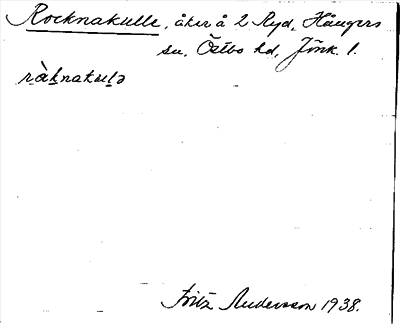 Rocknakulle, åker å 2 Ryd, Hångers
sn, Östbo hd, Jönk. l.
ràknakulə
Fritz Andersson 1938.